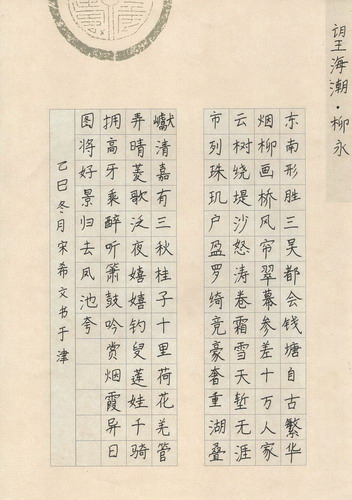 望海潮·柳永
东南形胜三吴都会钱塘自古繁华
烟柳画桥风帘翠幕参差十万人家
云树绕堤沙怒涛卷霜雪天堑无涯
市列珠玑户盈罗绮竞豪奢重湖叠
巘清嘉有三秋桂子十里荷花羌管
弄晴菱歌泛夜嬉嬉钓叟莲娃千骑
拥高牙乘醉听箫鼓吟赏烟霞异日
图将好景归去凤池夸
乙巳冬月宋希文书于津